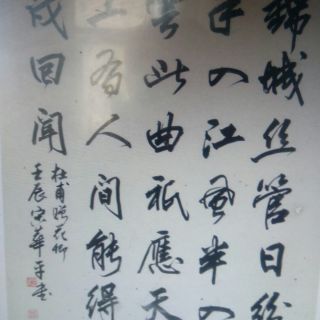 錦城丝管日紛
半入江風半入
雲此曲祇應天
上有人間能得
幾回聞
杜甫贈花卿
壬辰宋華平書